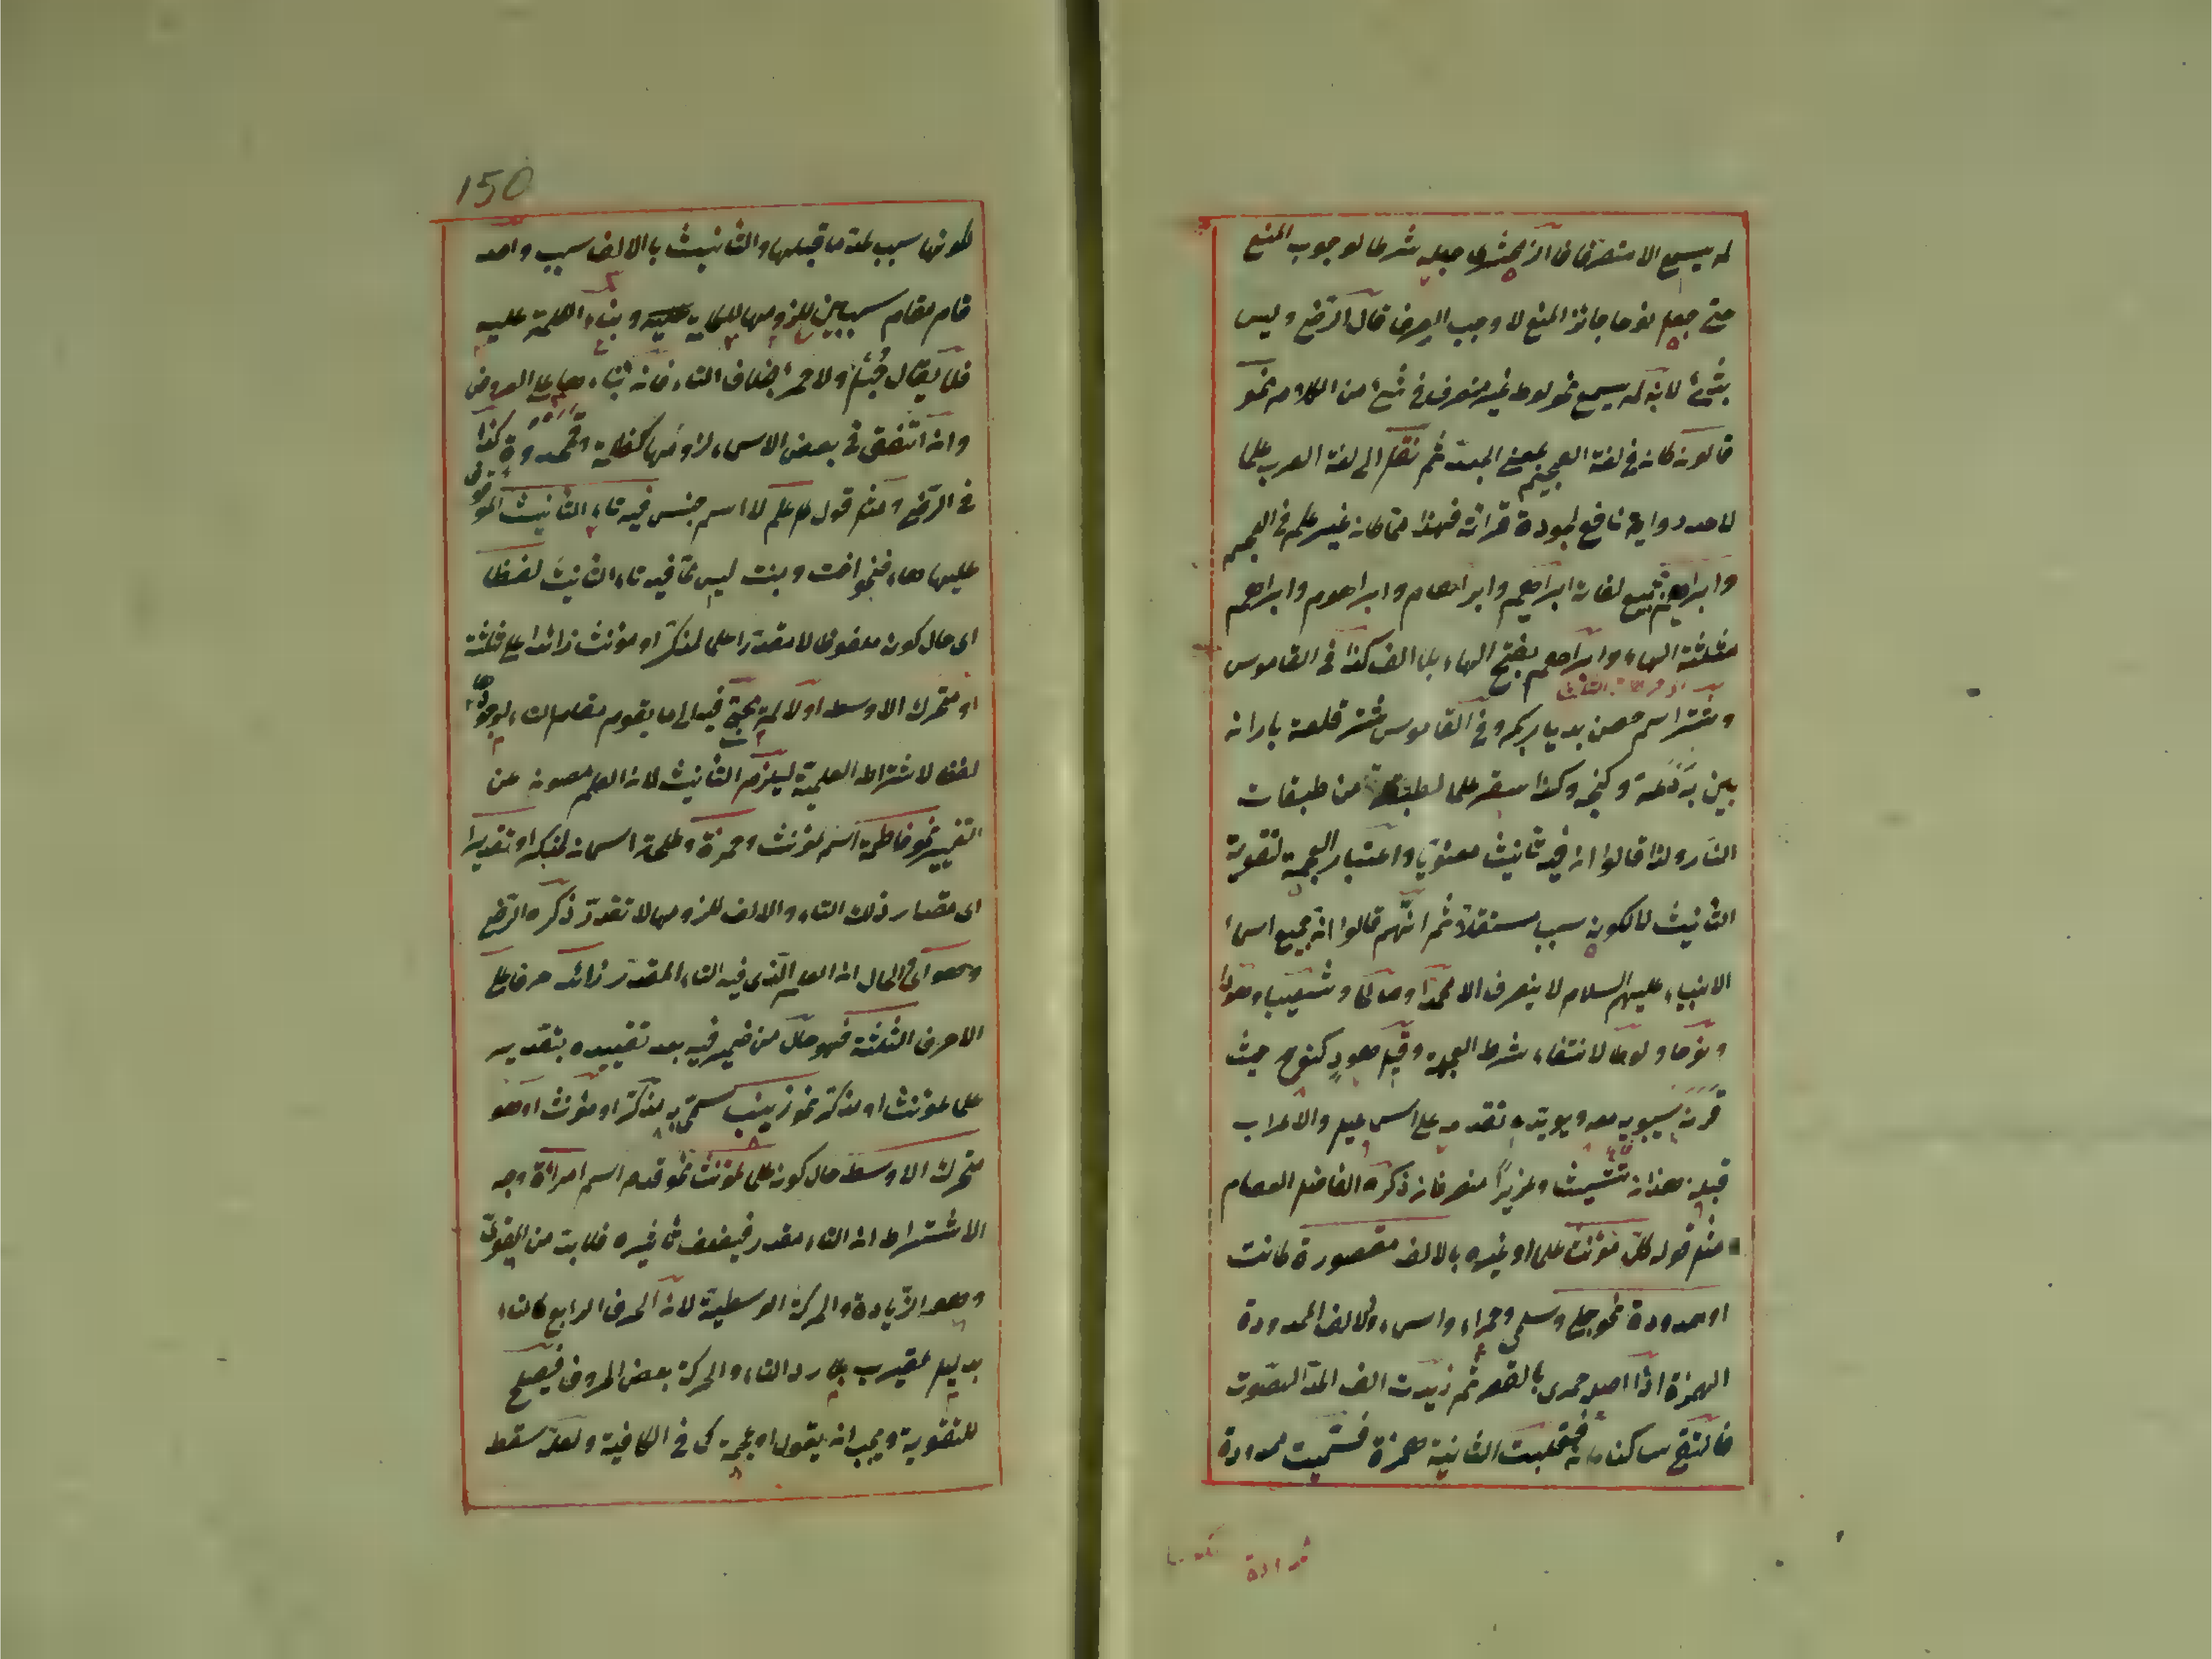 لم يسمع الا منصرفا فالزمخشرى جعله شرطا لوجوب المنع
حتى جعل نوحا جائز المنع لا وجب الصرف قال الرضى وليس
بشئ لانه لم يسمع نحو لوط غير منصرف فى شئ من الكلام نحو
قالون كان فى لغة العجم بمعنى الجيد ثم نقل الى لغة العرب علما
لاحد رواية نافع لجودة قرائة فهذا مما كان غير علم فى العجم
وابراهيم لغات ابراهيم وابراهام وابراهوم وابراهم
مثلثة الهاء وابراهم بفتح الهاء بلا الف كذا فى القاموس
وشتر اسم حصن بديار بكر وفى القاموس شتر قلعة باران
بين بردعة وكنجه وكذا سقر علم لطبقة من طبقات
النار ولذا قالوا ان فيه تانيث معنوى واعتبار العجمة لتقوية
التانيث لا لكونه سبب مستقلا ثم انهم قالوا ان جميع اسماء
الانبياء عليهم السلام لا ينصرف الا محمدا وصالحا وشعيبا وهودا
ونوحا ولوطا لانتفاء شرط العجمة وقيل هود كنوح حيث
قرنه سيبويه معه ويؤيده تقدمه على اسمعيل والاعراب
قبله هذا ان شيث وعزيرا منصرفان ذكره الفاضل العصام
منه قوله كل مؤنث علما او غيره بالالف مقصورة كانت
او ممدودة نحو حبلى وسلمى وحمراء واسماء والالف الممدودة
الهمزة اذا اصل حمرى بالقصر ثم زيدت الف المد الصوت
فالتقى ساكنان فقلبت الثانية همزة فسميت ممدودة
150
كونها سبب لمدة ما قبلها والتانيث بالالف سبب واحد
قام مقام سببين للزومها للكلمة وبناء الكلمة عليه
فلا يقال حبل ولا حمر بخلاف التاء فانه بناءها على العروض
وان اتفق فى بعض الاسماء لزومها كغلبة وقمحدوة كذا
فى الرضى ومنه قوله علم لا اسم جنس فيه تاء التانيث الموقوف
عليها هاء فنحو اخت وبنت ليس مما فيه تاء التانيث لفظا
اى حال كونه ملفوظا لا مقدرا علما لمذكر او مؤنث زائدا على ثلثة
او متحرك الاوسط او لا لم يحتج فيه الى ما يقوم مقام التاء لوجودها
لفظا لاشتراط العلمية ليلزم التانيث لان العلم مصون عن
التغيير نحو فاطمة اسم لمؤنث وحمزة وطلحة اسمان لمذكر او تقديرا
اى مقدار ذلك التاء والالف للزومها لا تقدر ذكره الرضى
وهو اى والحال ان العلم الذى فيه التاء المقدر زائد حرفا على
الاحرف الثلثة فهو حال من ضمير فيه بعد تقييده بتقدير
علما لمؤنث او مذكر نحو زينب سمى به مذكر او مؤنث او هو
متحرك الاوسط حال كونه علما لمؤنث نحو قدم اسم امرأة وجه
الاشتراط ان التاء مقدر فيضعف تاثيره فلا بد من القوى
وهو الزيادة والحركة الوسطية لان الحرف الرابع كالتاء
بدليل عقيرب بلا رد التاء والحركة بعض الحروف فيصلح
للتقوية ويجب ان يقول او عجمة كما فى الكافية ولعله سقط